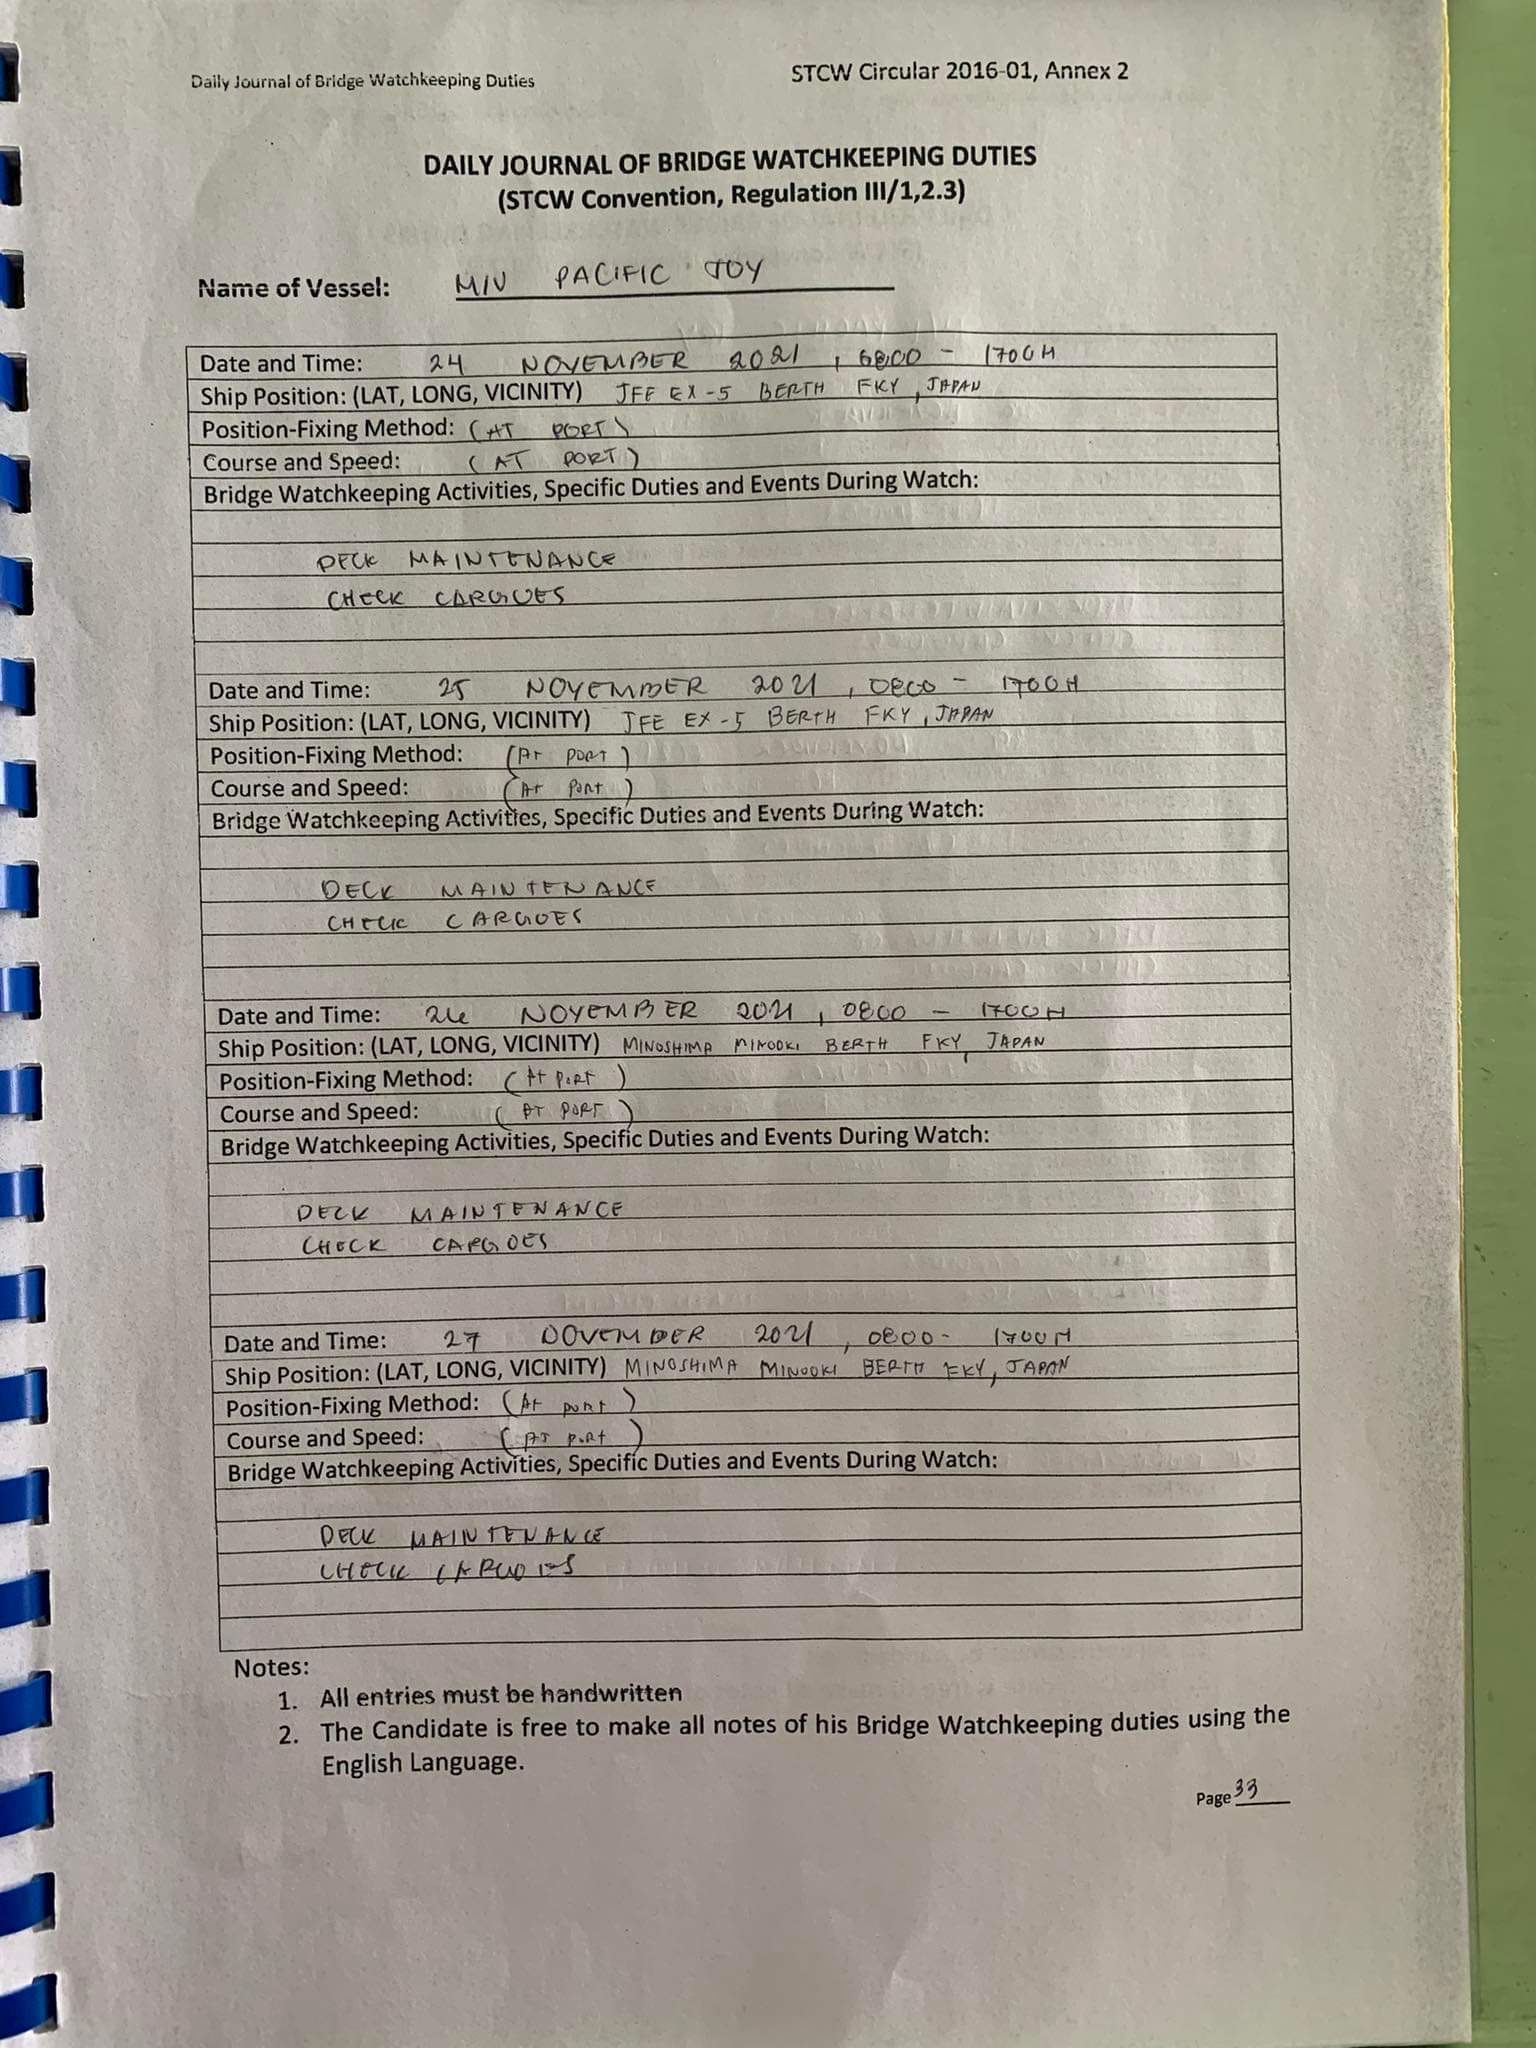 Daily Journal of Bridge Watchkeeping Duties STCW Circular 2016-01, Annex 2
DAILY JOURNAL OF BRIDGE WATCHKEEPING DUTIES
(STCW Convention, Regulation III/1,2.3)
Name of Vessel: M/V PACIFIC JOY
Date and Time: 24 NOVEMBER 2021, 0800 - 1700H
Ship Position: (LAT, LONG, VICINITY) JFE EX-5 BERTH FKY, JAPAN
Position-Fixing Method: (AT PORT)
Course and Speed: (AT PORT)
Bridge Watchkeeping Activities, Specific Duties and Events During Watch:
DECK MAINTENANCE
CHECK CARGOES
Date and Time: 25 NOVEMBER 2021, 0800 - 1700H
Ship Position: (LAT, LONG, VICINITY) JFE EX-5 BERTH FKY, JAPAN
Position-Fixing Method: (At port)
Course and Speed: (At Port)
Bridge Watchkeeping Activities, Specific Duties and Events During Watch:
DECK MAINTENANCE
CHECK CARGOES
Date and Time: 26 NOVEMBER 2021, 0800 - 1700H
Ship Position: (LAT, LONG, VICINITY) MINOSHIMA MINOOKI BERTH FKY, JAPAN
Position-Fixing Method: (At PORT)
Course and Speed: (AT PORT)
Bridge Watchkeeping Activities, Specific Duties and Events During Watch:
DECK MAINTENANCE
CHECK CARGOES
Date and Time: 27 NOVEMBER 2021, 0800 - 1700H
Ship Position: (LAT, LONG, VICINITY) MINOSHIMA MINOOKI BERTH FKY, JAPAN
Position-Fixing Method: (At port)
Course and Speed: (AT port)
Bridge Watchkeeping Activities, Specific Duties and Events During Watch:
DECK MAINTENANCE
CHECK CARGOES
Notes:
1. All entries must be handwritten
2. The Candidate is free to make all notes of his Bridge Watchkeeping duties using the
English Language.
Page 33